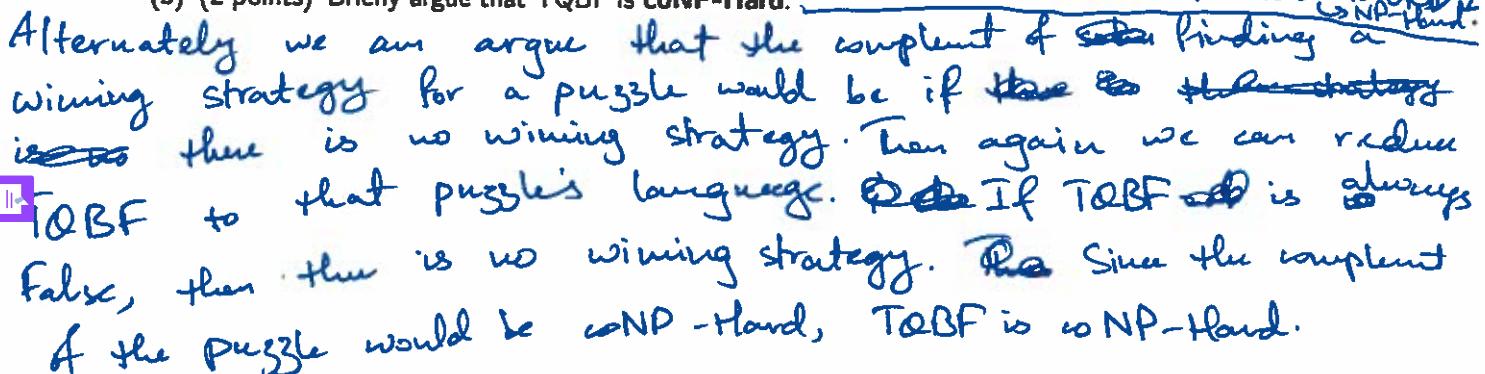 (b) (2 points) Briefly argue that TQBF is coNP-Hard.
↳ NP-Hard.
Alternately we can argue that the complent of finding a
wining strategy for a puzzle would be if
there is no wining strategy. Then again we can reduce
TQBF to that puzzle's language. If TQBF is always
False, then there is no wining strategy. Since the complent
of the puzzle would be coNP-Hard, TQBF is coNP-Hard.